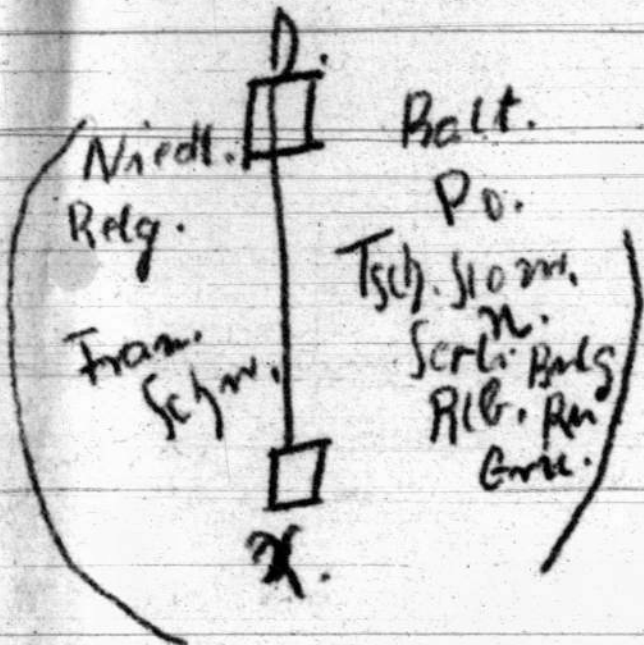 D.
Niedl.
Belg.
Fran.
Schw.
Balt.
Po.
Tsch. Slow.
Serb. Bulg
Alb. Ru